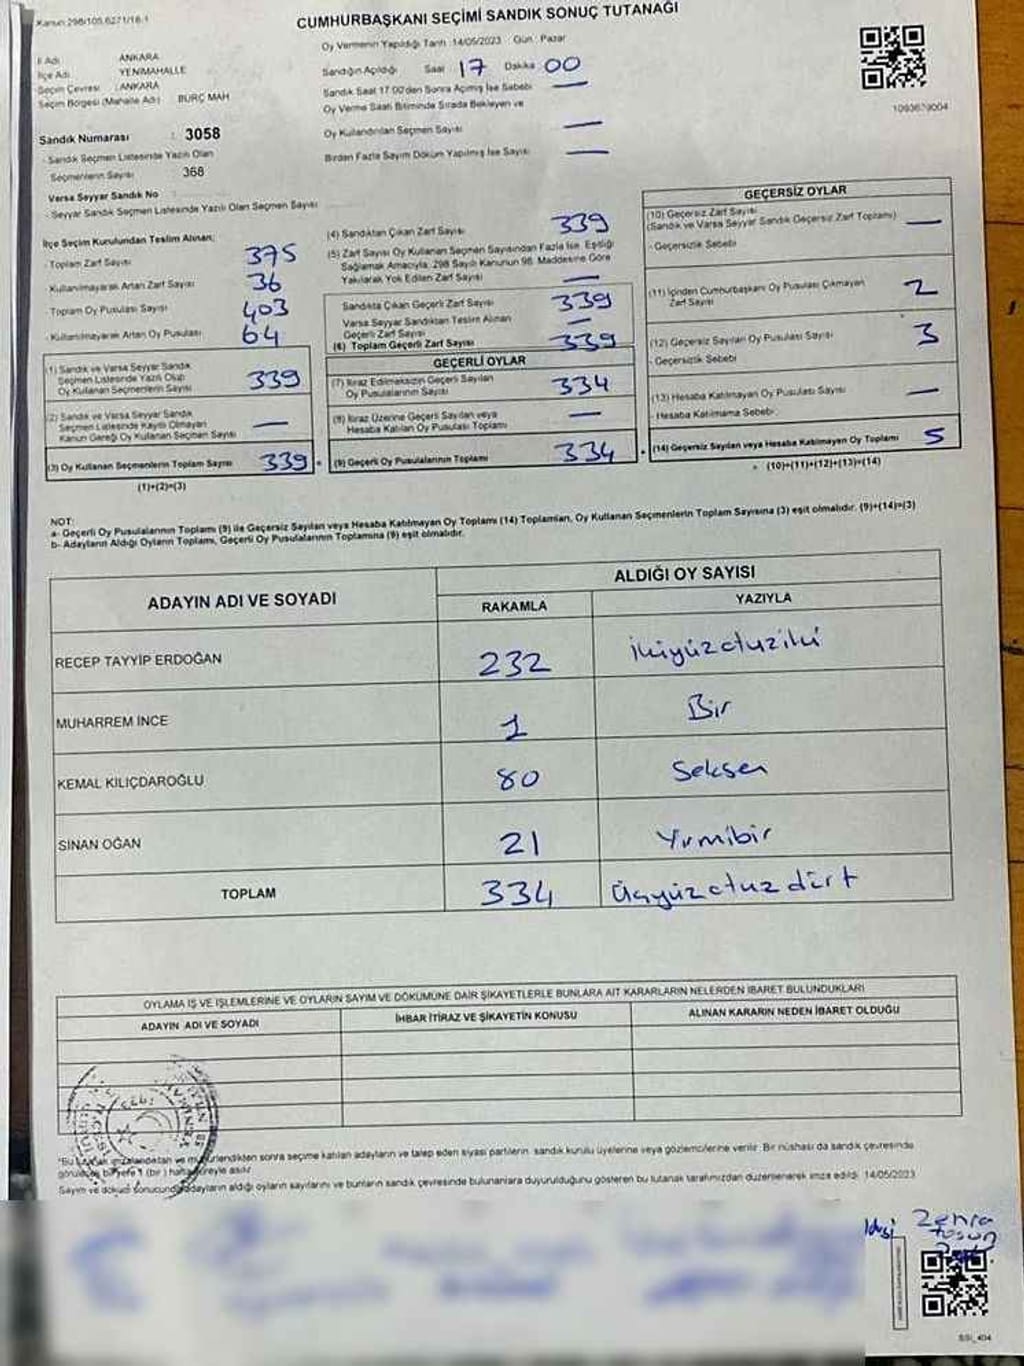 Kanun:298/105,6271/16-1
CUMHURBAŞKANI SEÇİMİ SANDIK SONUÇ TUTANAĞI
Oy Vermenin Yapıldığı Tarih :14/05/2023 Gün : Pazar
İl Adı ANKARA
İlçe Adı YENİMAHALLE
Seçim Çevresi : ANKARA
Seçim Bölgesi (Mahalle Adı) BURÇ MAH
Sandığın Açıldığı Saat 17 Dakika 00
Sandık Saat 17:00'den Sonra Açılmış İse Sebebi —
Oy Verme Saati Bitiminde Sırada Bekleyen ve
Oy Kullandırılan Seçmen Sayısı —
Birden Fazla Sayım Döküm Yapılmış İse Sayısı —
Sandık Numarası : 3058
- Sandık Seçmen Listesinde Yazılı Olan
Seçmenlerin Sayısı 368
Varsa Seyyar Sandık No
- Seyyar Sandık Seçmen Listesinde Yazılı Olan Seçmen Sayısı
İlçe Seçim Kurulundan Teslim Alınan;
- Toplam Zarf Sayısı 375
- Kullanılmayarak Artan Zarf Sayısı 36
- Toplam Oy Pusulası Sayısı 403
- Kullanılmayarak Artan Oy Pusulası 64
(1) Sandık ve Varsa Seyyar Sandık
Seçmen Listesinde Yazılı Olup
Oy Kullanan Seçmenlerin Sayısı 339
(2) Sandık ve Varsa Seyyar Sandık
Seçmen Listesinde Kayıtlı Olmayan
Kanun Gereği Oy Kullanan Seçmen Sayısı —
(3) Oy Kullanan Seçmenlerin Toplam Sayısı 339
(1)+(2)=(3)
(4) Sandıktan Çıkan Zarf Sayısı 339
(5) Zarf Sayısı Oy Kullanan Seçmen Sayısından Fazla İse, Eşitliği
Sağlamak Amacıyla, 298 Sayılı Kanunun 98. Maddesine Göre
Yakılarak Yok Edilen Zarf Sayısı —
Sandıkta Çıkan Geçerli Zarf Sayısı 339
Varsa Seyyar Sandıktan Teslim Alınan
Geçerli Zarf Sayısı —
(6) Toplam Geçerli Zarf Sayısı 339
GEÇERLİ OYLAR
(7) İtiraz Edilmeksizin Geçerli Sayılan
Oy Pusulalarının Sayısı 334
(8) İtiraz Üzerine Geçerli Sayılan veya
Hesaba Katılan Oy Pusulası Toplamı —
(9) Geçerli Oy Pusulalarının Toplamı 334
GEÇERSİZ OYLAR
(10) Geçersiz Zarf Sayısı
(Sandık ve Varsa Seyyar Sandık Geçersiz Zarf Toplamı) —
- Geçersizlik Sebebi
(11) İçinden Cumhurbaşkanı Oy Pusulası Çıkmayan
Zarf Sayısı 2
(12) Geçersiz Sayılan Oy Pusulası Sayısı 3
- Geçersizlik Sebebi
(13) Hesaba Katılmayan Oy Pusulası Sayısı —
- Hesaba Katılmama Sebebi
(14) Geçersiz Sayılan veya Hesaba Katılmayan Oy Toplamı 5
(10)+(11)+(12)+(13)=(14)
NOT:
a- Geçerli Oy Pusulalarının Toplamı (9) ile Geçersiz Sayılan veya Hesaba Katılmayan Oy Toplamı (14) Toplamları, Oy Kullanan Seçmenlerin Toplam Sayısına (3) eşit olmalıdır. (9)+(14)=(3)
b- Adayların Aldığı Oyların Toplamı, Geçerli Oy Pusulalarının Toplamına (9) eşit olmalıdır.
ADAYIN ADI VE SOYADI ALDIĞI OY SAYISI
RAKAMLA YAZIYLA
RECEP TAYYİP ERDOĞAN 232 İkiyüzotuziki
MUHARREM İNCE 1 Bir
KEMAL KILIÇDAROĞLU 80 Seksen
SİNAN OĞAN 21 Yirmibir
TOPLAM 334 Üçyüzotuzdört
OYLAMA İŞ VE İŞLEMLERİNE VE OYLARIN SAYIM VE DÖKÜMÜNE DAİR ŞİKAYETLERLE BUNLARA AİT KARARLARIN NELERDEN İBARET BULUNDUKLARI
ADAYIN ADI VE SOYADI İHBAR İTİRAZ VE ŞİKAYETİN KONUSU ALINAN KARARIN NEDEN İBARET OLDUĞU
sonra seçime katılan adayların ve talep eden siyasi partilerin, sandık kurulu üyelerine veya gözlemcilerine verilir. Bir nüshası da sandık çevresinde
Sayım ve döküm sonucunda adayların aldığı oyların sayılarını ve bunların sandık çevresinde bulunanlara duyurulduğunu gösteren bu tutanak tarafımızdan düzenlenerek imza edildi. 14/05/2023
Zehra
Tosun